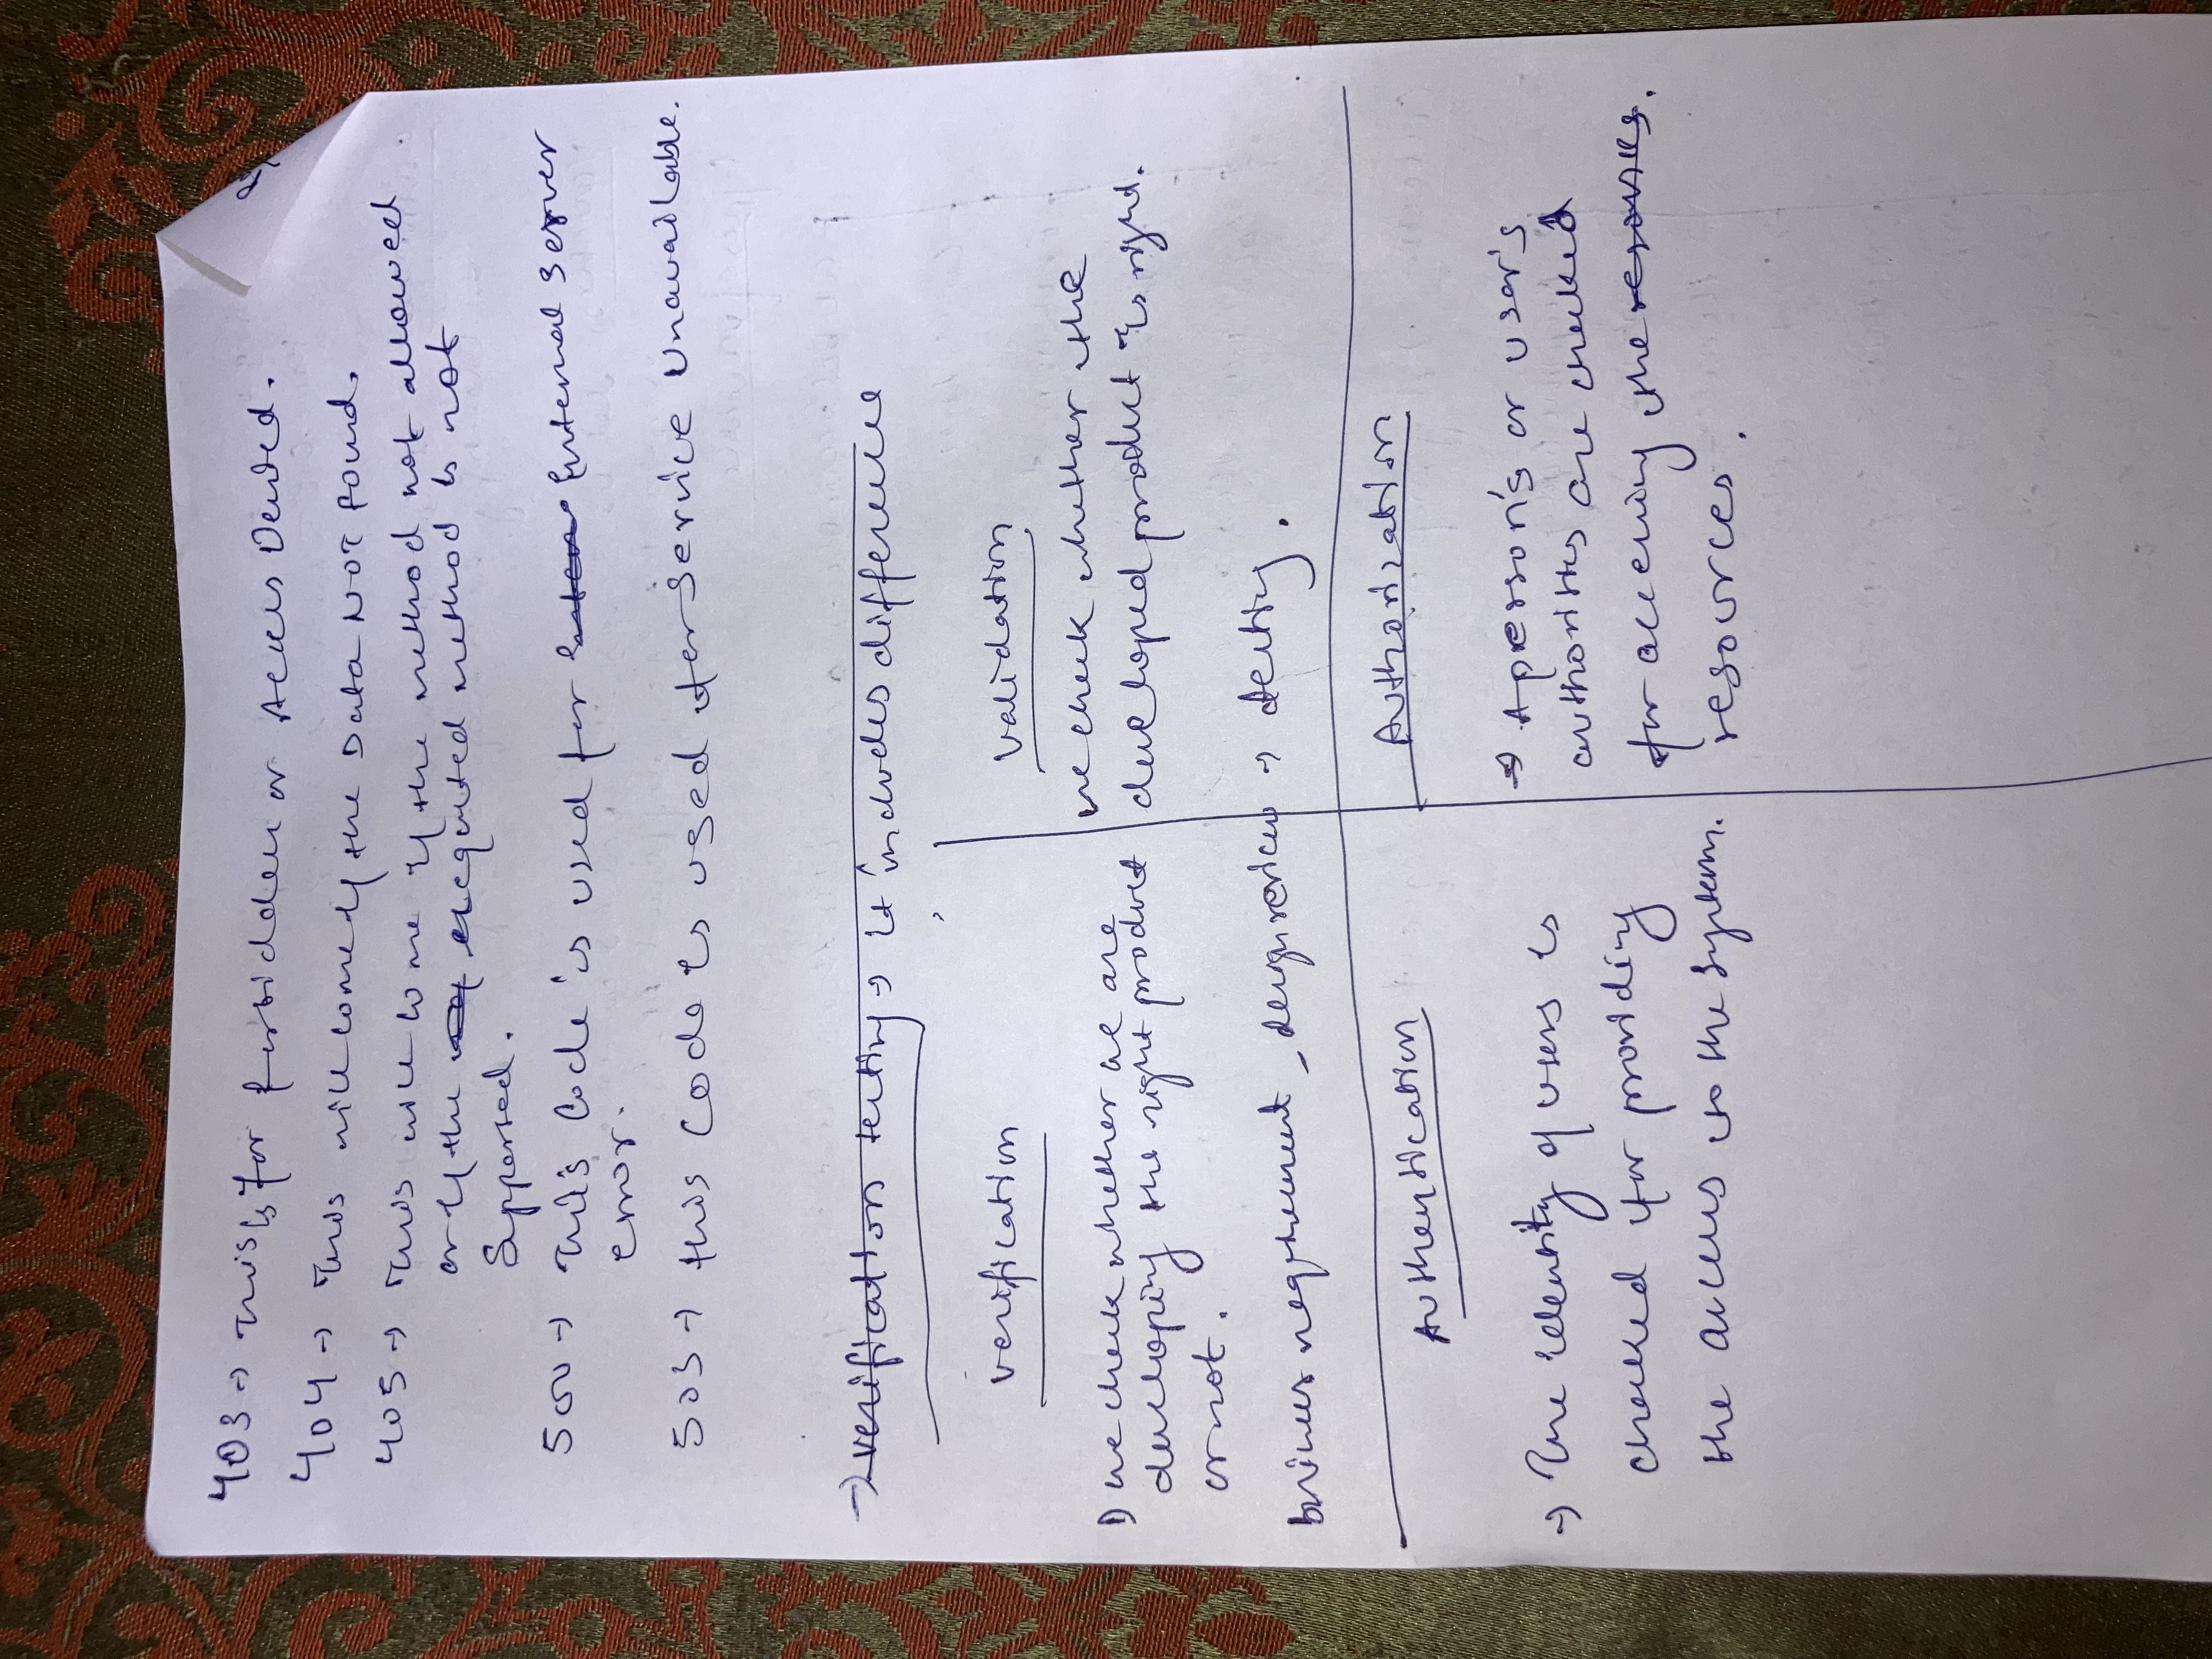 403 → This is for forbidden or Access Denied.
404 → This will come if the Data NOT found.
405 → This will come if the method not allowed
or if the requested method is not
Supported.
500 → This Code is used for Internal Server
error.
503 → this Code is used for service Unavailable.
→ verification testing → it includes difference
verification
1) we check whether we are
developing the right product
or not.
business requirement - design review
validation
we check whether the
developed product is right.
→ testing.
Authentication
→ The identity of users is
checked for providing
the access to the system.
Authorization
→ A person's or user's
authorities are checked
for accessing the resources.
resources.